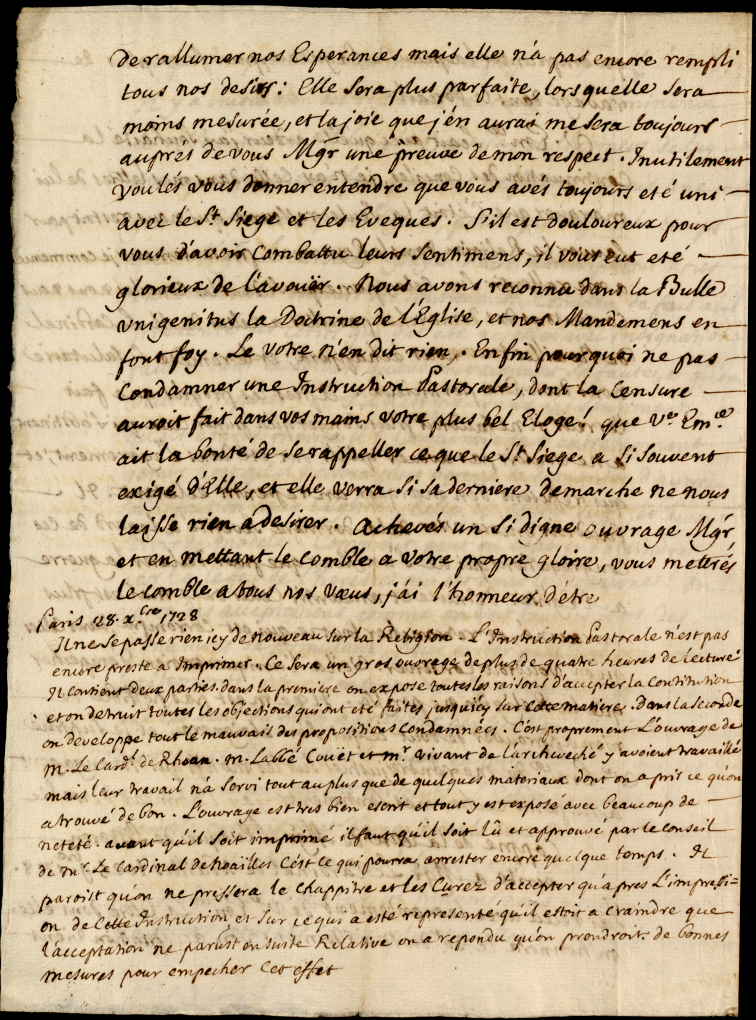 de rallumer nos Esperances mais elle n'a pas encore rempli
tous nos desirs: Elle sera plus parfaite, lorsquelle sera
moins mesurée, et la joie que j'en aurai me sera toujours
auprés de vous Mgr une preuve de mon respect. Inutilement
voulés vous donner entendre que vous avés toujours eté uni
avec le St. Siege et les Eveques. S'il est douloureux pour
vous d'avoir combattu leurs sentimens, il vous eut eté
glorieux de l'avoüer. Nous avons reconnu dans la Bulle
Unigenitus la Doctrine de l'Eglise, et nos Mandemens en
font foy. Le votre n'en dit rien. Enfin pourquoi ne pas
condamner une Instruction Pastorale, dont la censure
auroit fait dans vos mains votre plus bel Eloge! que Ve. Emce.
ait la bonté de se rappeller ce que le St. Siege a si souvent
exigé d'Elle, et elle verra si sa derniere demarche ne nous
laisse rien a desirer. achevés un si digne ouvrage Mgr,
et en mettant le comble a votre propre gloire, vous mettrés
le comble a tous nos vœus, j'ai l'honneur d'étre
Paris 28. xbre 1728
Il ne se passe rien icy de nouveau sur la Religion. L'Instruction Pastorale n'est pas
encore preste a Imprimer. Ce sera un gros ouvrage de plus de quatre heures de lecture
Il contient deux parties. dans la premiere on expose toutes les raisons d'accepter la Constitution
et on detruit toutes les objections qui ont eté faites jusqu'icy sur cette matiere. Dans la seconde
on developpe tout le mauvais des propositions condamnées. C'est proprement L'ouvrage de
M. Le Cardl. de Rhoan. M. Labbé Couët et mr. vivant de L'archeveché y avoient travaillé
mais leur travail n'a servi tout au plus que de quelques materiaux dont on a pris ce qu'on
a trouvé de bon. L'ouvrage est tres bien escrit et tout y est exposé avec beaucoup de
neteté. avant qu'il soit imprimé il faut qu'il soit lû et approuvé par le conseil
de mr. Le Cardinal de Noailles C'est ce qui pourra arrester encore quelque temps. Il
paroist qu'on ne pressera le Chappitre et les Curez d'accepter qu'apres L'impressi=
on de Cette Instruction et sur ce qui a esté representé qu'il estoit a craindre que
l'acceptation ne parust ensuite Relative on a repondu qu'on prendroit de bonnes
mesures pour empecher Cet effet